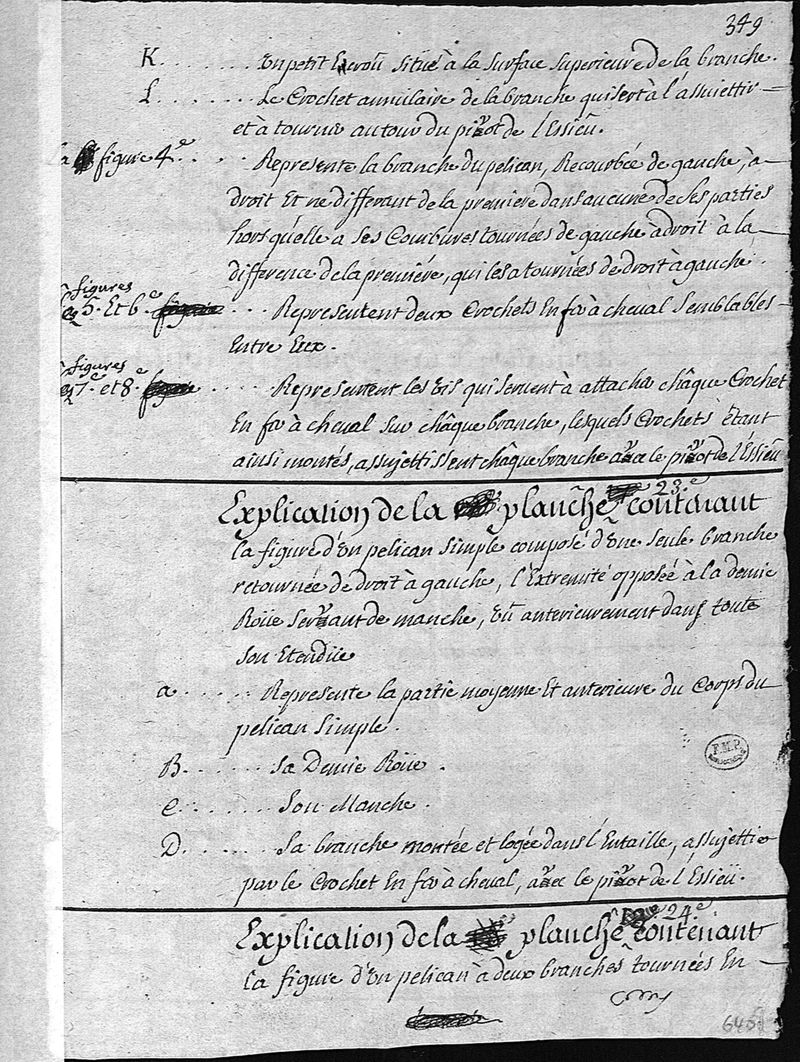 349
K. . . . . . . . . un petit Ecroû situé à la surface superieure de la branche.
L. . . . . . . . . Le Crochet annulaire de la branche qui sert à l'assujettir
et à tourner autour du pivot de l'Essieû.
la figure 4e. . . . . Represente la branche du pelican, Recourbée de gauche, à
droit Et ne differant de la premiere dans aucune de ses parties
hors qu'elle a ses Courbures tournées de gauche à droit à la
difference de la premiére, qui les a tournées de droit à gauche.
figures
5e. Et 6e . . . Representent deux Crochets En fer à cheval Semblables
Entre Eux.
figures
7e. et 8e . . . . . Representent les vis qui servent à attacher châque Crochet
En fer à cheval sur châque branche, lesquels Crochets êtant
ainsi montés, assujettissent châque branche avec le pivot de l'Essieû
Explication de la planche 23e. contenant
la figure d'un pelican simple composé d'une seule branche
retournée de droit à gauche, l'Extremité opposée à la demie
Roüe servant de manche, vû anterieurement dans toute
son Etendüe
a . . . . . . Represente la partie moyenne Et anterieure du Corps du
pelican simple.
B. . . . . . . Sa Demie Roüe.
C. . . . . . . Son Manche.
D. . . . . . . Sa branche montée et logée dans l'Entaille, assujettie
par le Crochet En fer à cheval, avec le pivot de l'Essieü.
Explication de la planche 24e. contenant
la figure d'un pelican à deux branches tournées En
F.M.P.